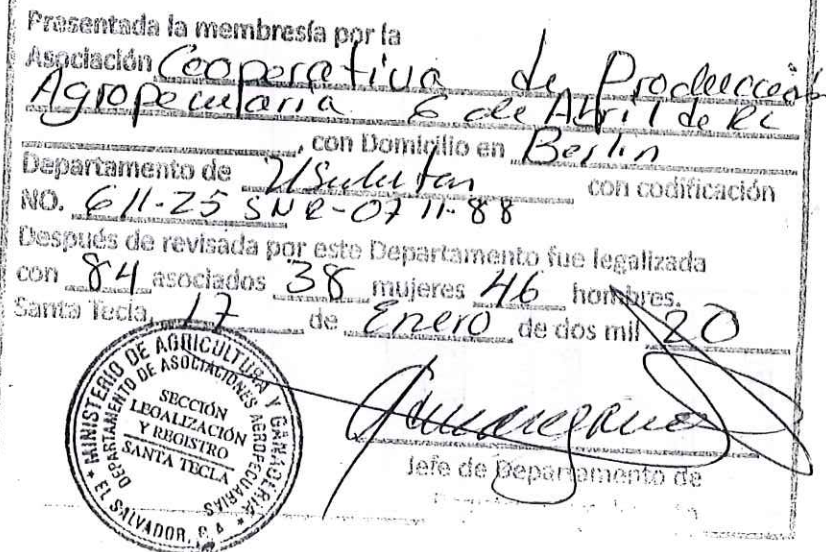 Presentada la membresía por la
Asociación Cooperativa de Producción
Agropecuaria 6 de Abril de RL
, con Domicilio en Berlin
Departamento de Usulutan con codificación
NO. 611-25 SNR-07 11-88
Después de revisada por este Departamento fue legalizada
con 84 asociados 38 mujeres 46 hombres.
Santa Tecla, 17 de Enero de dos mil 20
MINISTERIO DE AGRICULTURA Y GANADERIA
DEPARTAMENTO DE ASOCIACIONES AGROPECUARIAS
SECCIÓN
LEGALIZACIÓN
Y REGISTRO
SANTA TECLA
* EL SALVADOR, C.A. *
Jefe de Departamento de